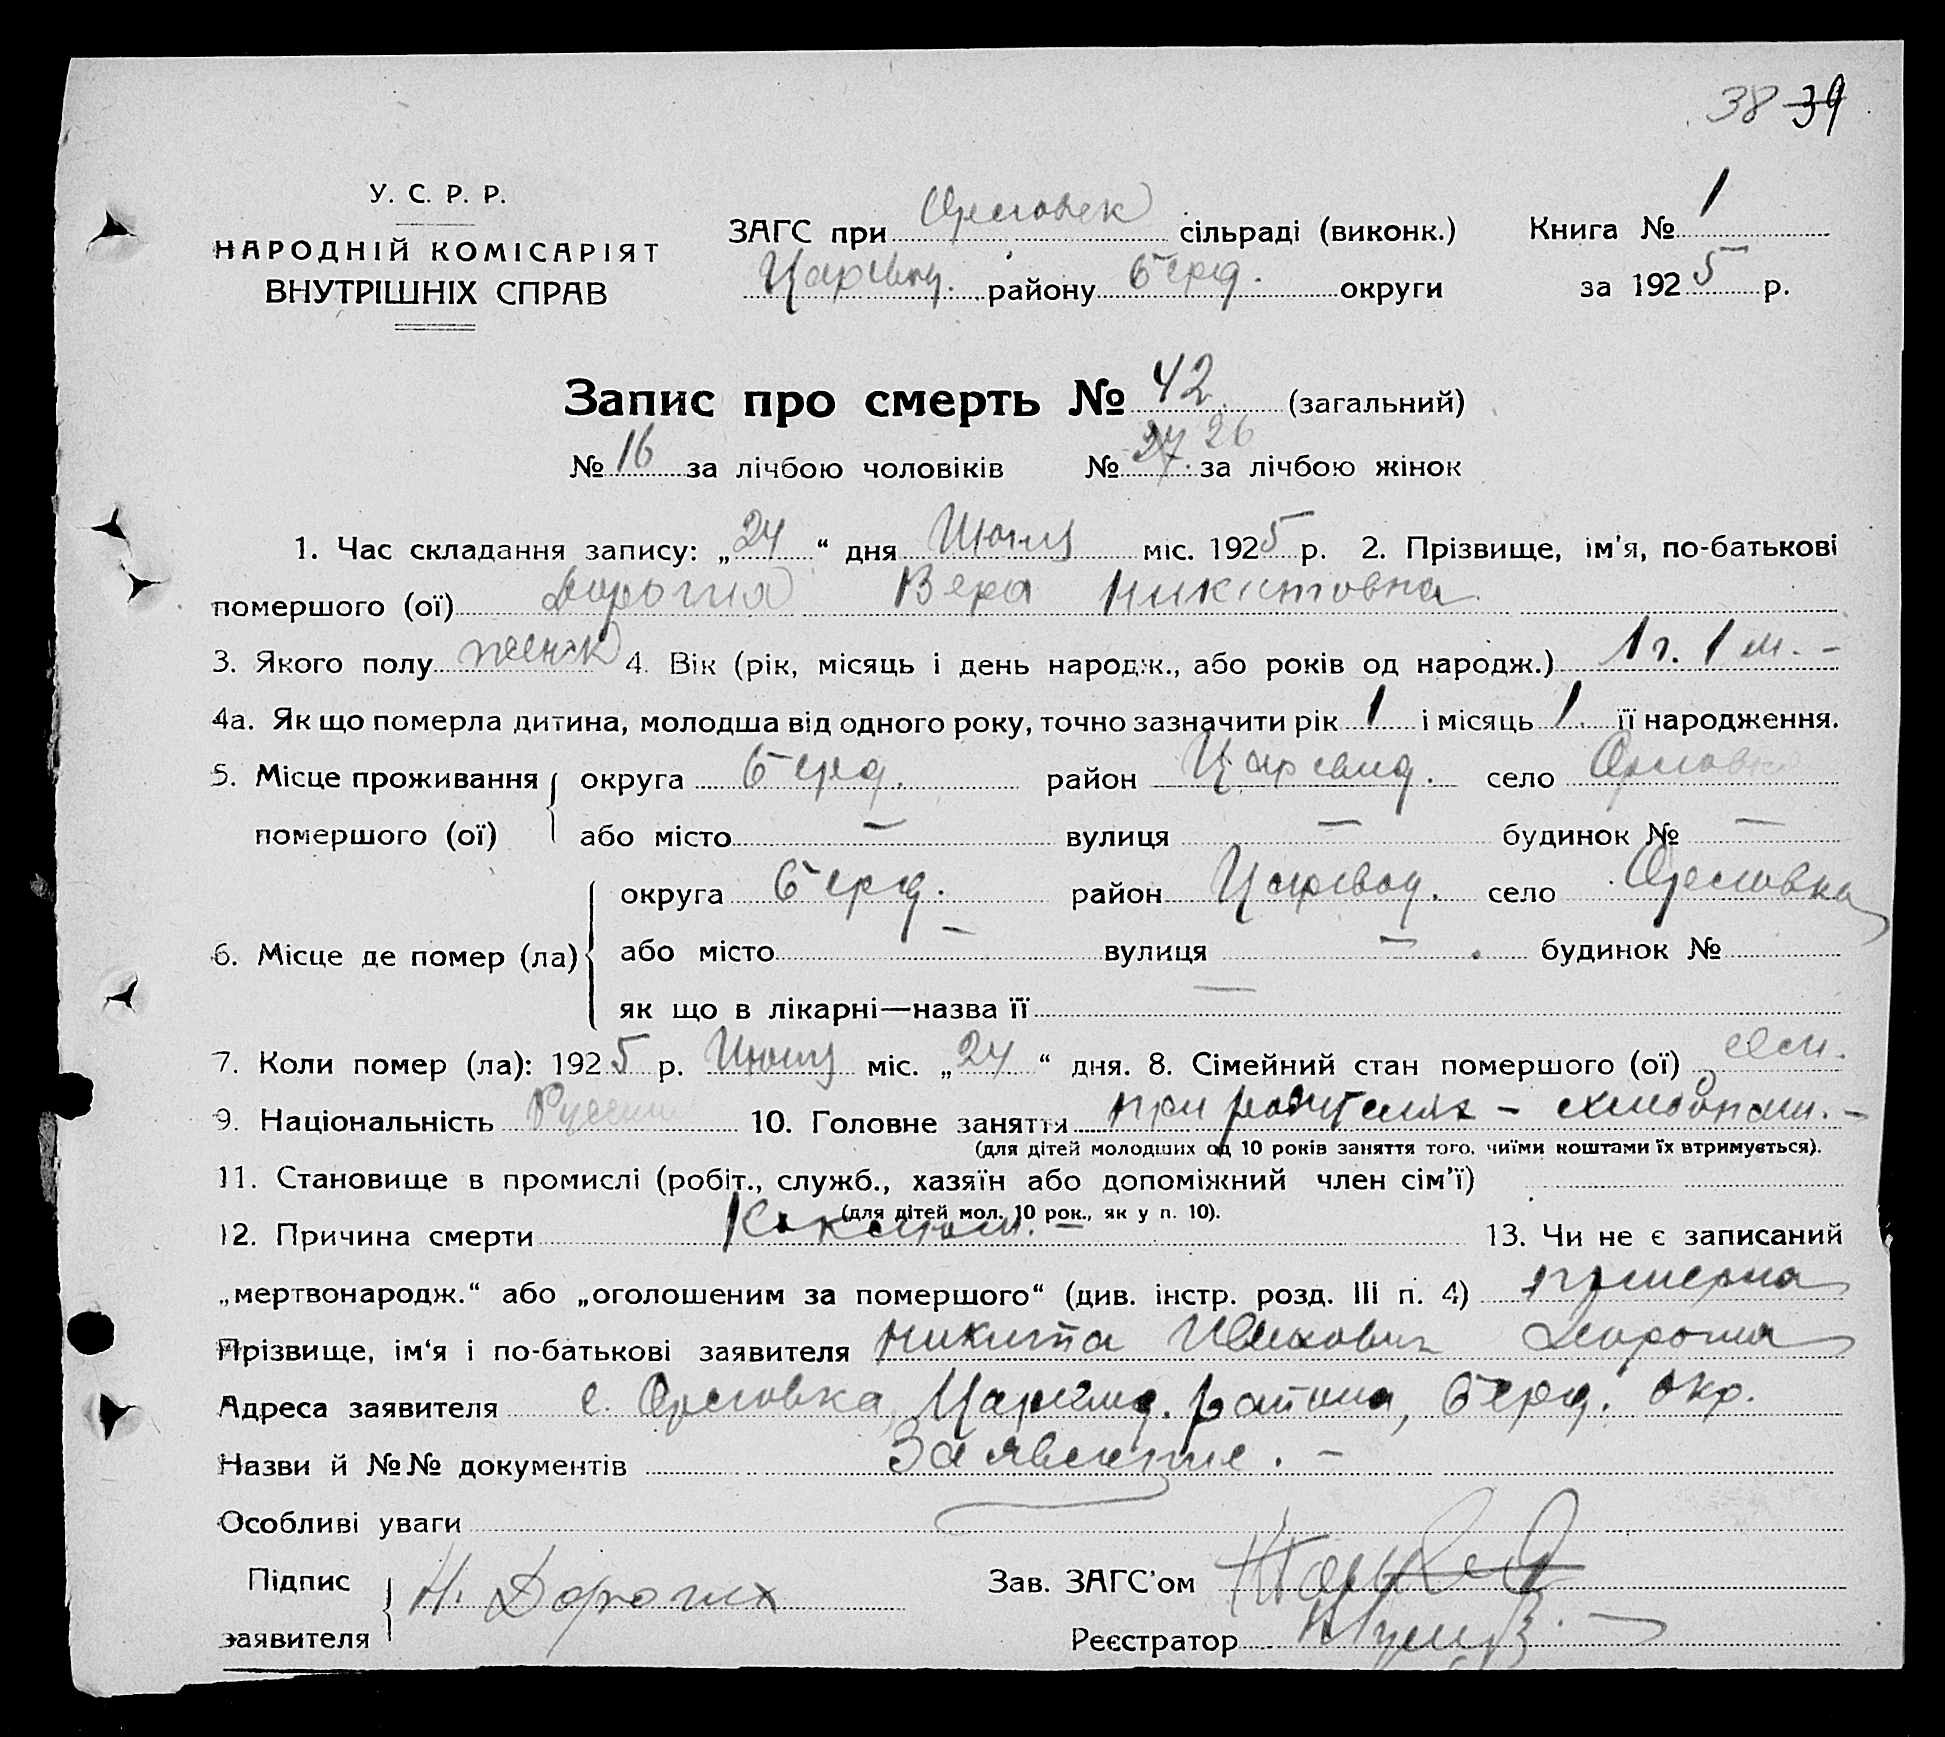 38 39
У. С. Р. Р.
НАРОДНІЙ КОМІСАРІЯТ
ВНУТРІШНІХ СПРАВ
ЗАГС при сільраді (виконк.) Книга № 1
району Берд. округи за 1925 р.
Запис про смерть № 42 (загальний)
№ 16 за лічбою чоловіків № 27 26 за лічбою жінок
1. Час складання запису: „24“ дня міс. 1925 р. 2. Прізвище, ім'я, по-батькові
помершого (ої) Вера Никитовна
3. Якого полу женск 4. Вік (рік, місяць і день народж., або років од народж.) 1 г. 1 м. -
4а. Як що померла дитина, молодша від одного року, точно зазначити рік 1 і місяць 1. її народження.
5. Місце проживання округа Берд. район село
помершого (ої) або місто — вулиця — будинок № —
округа Берд. район село
6. Місце де помер (ла) або місто — вулиця — будинок №
як що в лікарні—назва її —
7. Коли помер (ла): 1925 р. міс. „24“ дня. 8. Сімейний стан помершого (ої)
9. Національність 10. Головне заняття при родителях - хлебопаш. -
(для дітей молодших од 10 років заняття того, чиїми коштами їх втримується).
11. Становище в промислі (робіт., служб., хазяїн або допоміжний член сім'ї)
(для дітей мол. 10 рок., як у п. 10).
12. Причина смерти Коклюш. - 13. Чи не є записаний
„мертвонародж.“ або „оголошеним за помершого“ (див. інстр. розд. III п. 4)
Прізвище, ім'я і по-батькові заявителя Никита Иванович
Адреса заявителя с. района, Берд. окр.
Назви й №№ документів Заявление. -
Особливі уваги
Підпис Зав. ЗАГС'ом
заявителя Н. Дорогих
Реєстратор